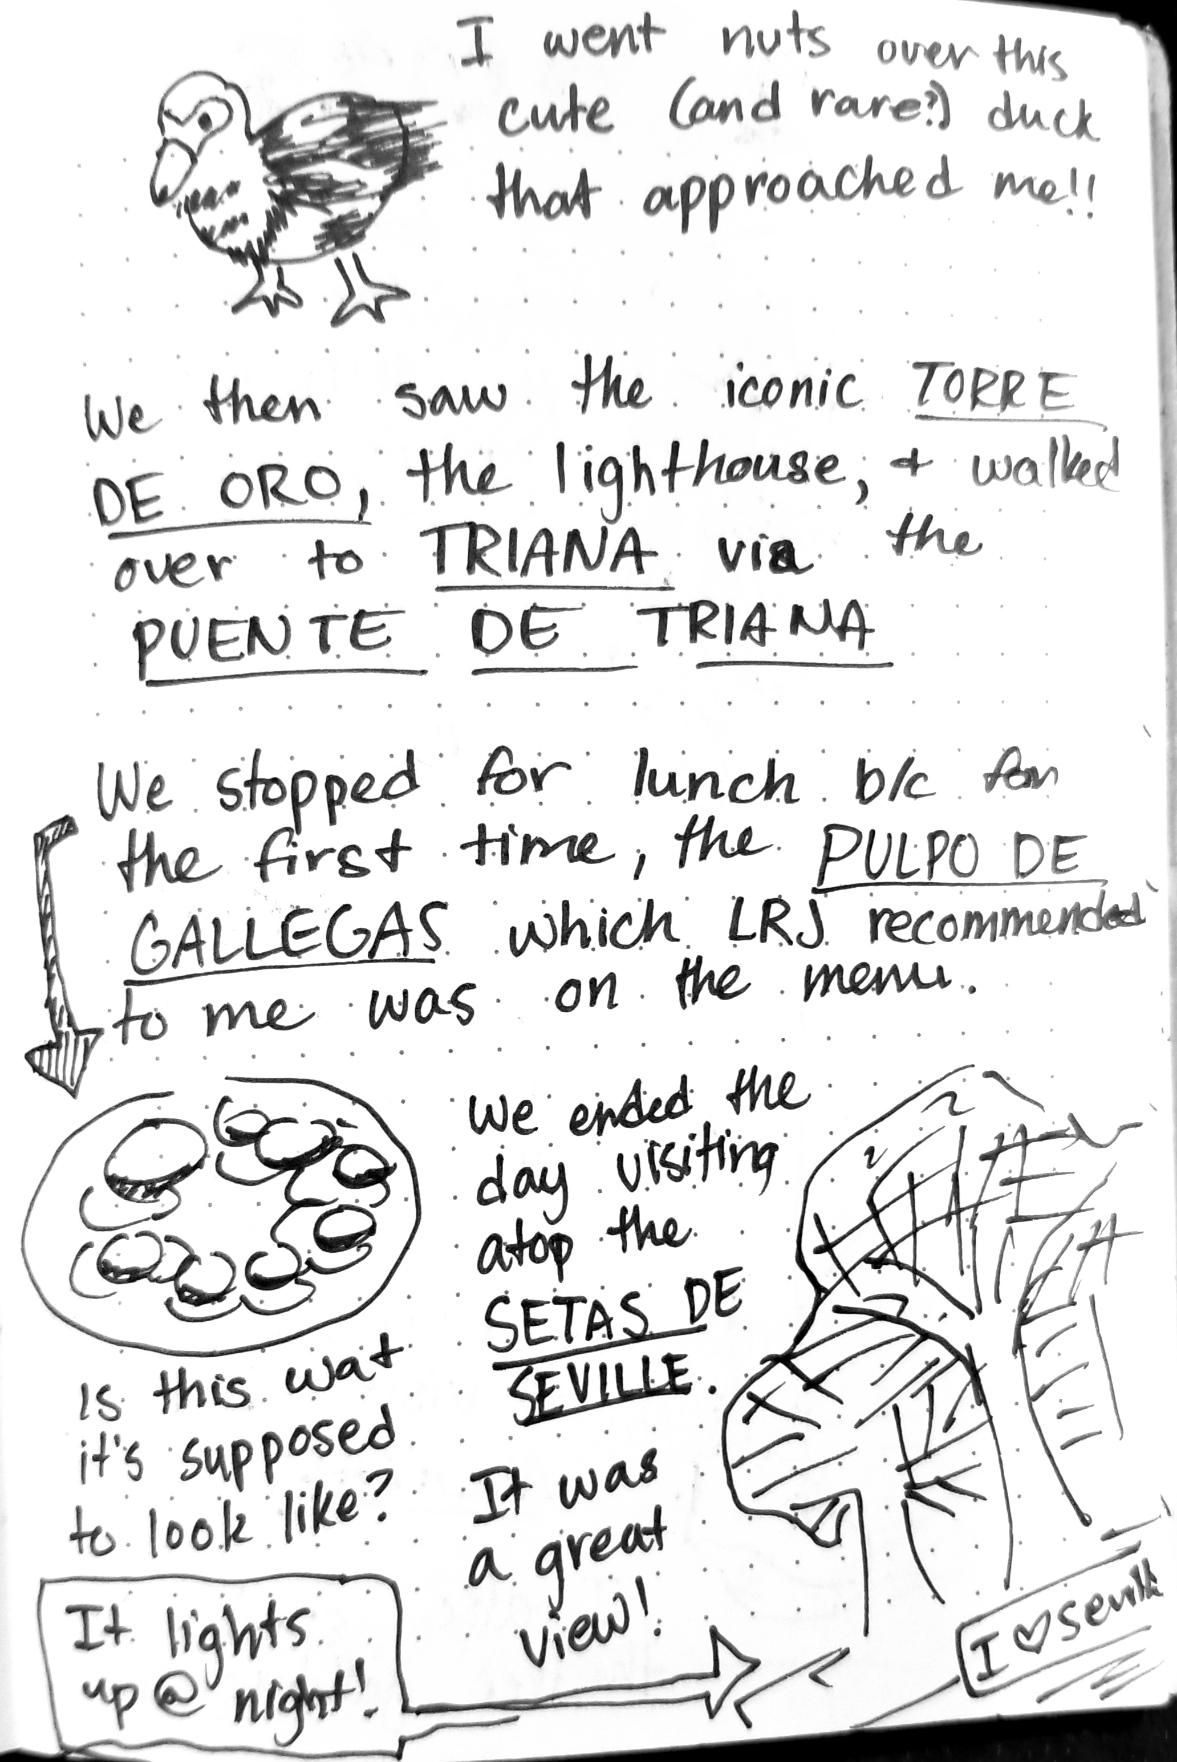 I went nuts over this
cute (and rare?) duck
that approached me!!
We then saw the iconic TORRE
DE ORO, the lighthouse, + walked
over to TRIANA via the
PUENTE DE TRIANA
We stopped for lunch b/c for
the first time, the PULPO DE
GALLEGAS which LRJ recommended
to me was on the menu.
Is this wat
it's supposed
to look like?
We ended the
day visiting
atop the
SETAS DE
SEVILLE.
It was
a great
view!
It lights
up @ night!
I ♡ Seville